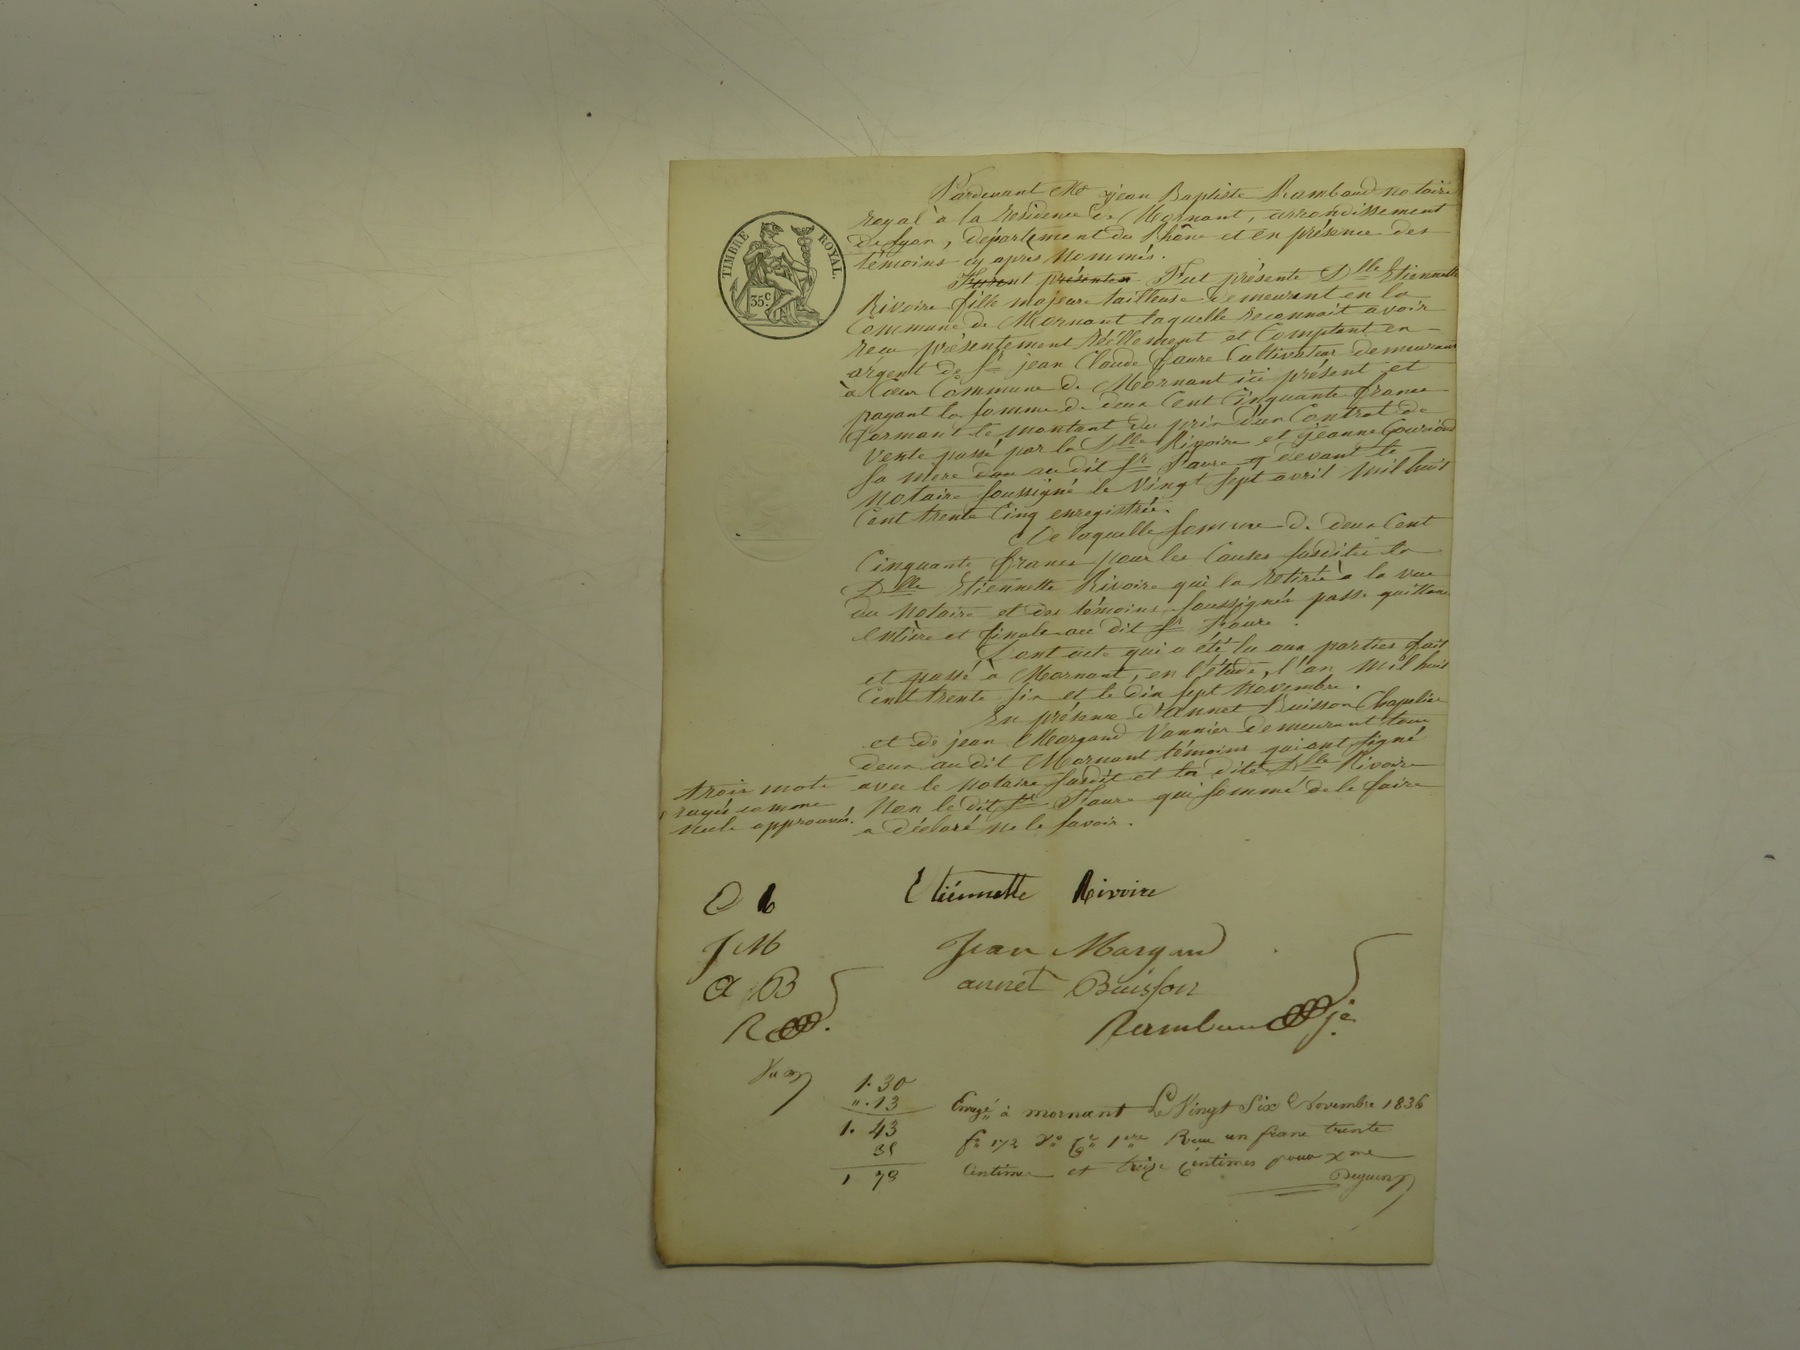 TIMBRE ROYAL.
35 c.
Pardevant Me jean Baptiste Rambaud notaire
royal à la residence de Mornant, arrondissement
de lyon, département du Rhône et en présence des
témoins cy après nommés.
Furent présentes Fut présente Dlle Etiennette
Rivoire fille majeure tailleuse demeurant en la
Commune de Mornant laquelle reconnait avoir
recu présentement réellement et Comptant en
argent de Sr jean Claude faure Cultivateur demeurant
à Commune de Mornant ici présent et
payant la somme de deux Cent Cinquante francs
formant le montant du prix d'un Contrat de
Vente passé par la Dlle Rivoire et jeanne
sa mere au dit Sr Faure devant le
notaire soussigné le Vingt sept avril mil huit
Cent trente Cinq enregistrée.
De laquelle somme de deux Cent
Cinquante francs pour les Causes susdites la
Dlle Etiennette Rivoire qui la retirée à la vue
du notaire et des témoins soussignés passe quittance
entière et finale au dit Sr Faure.
Dont acte qui a été lu aux parties fait
et passé à Mornant, en l'étude, l'an mil huit
Cent trente six et le dix sept novembre.
En présence d'annet Buisson Chapelier
et de jean Margand Vannier demeurant tous
deux au dit Mornant témoins qui ont signé
avec le notaire susdit et la dite Dlle Rivoire
Non le dit Sr Faure qui sommé de le faire
a déclaré ne le savoir.
trois mots
rayés comme
nuls approuvés.
Etiennette Rivoire
J M
Jean Margand
a B
annet Buisson
R
Rambaud
1. 30
". 13
1. 43
35
1 78
Enregé à mornant Le Vingt Six Novembre 1836
fo 172 Vo Ce 1ere Recu un franc trente
Centimes et treize Centimes pour Xme